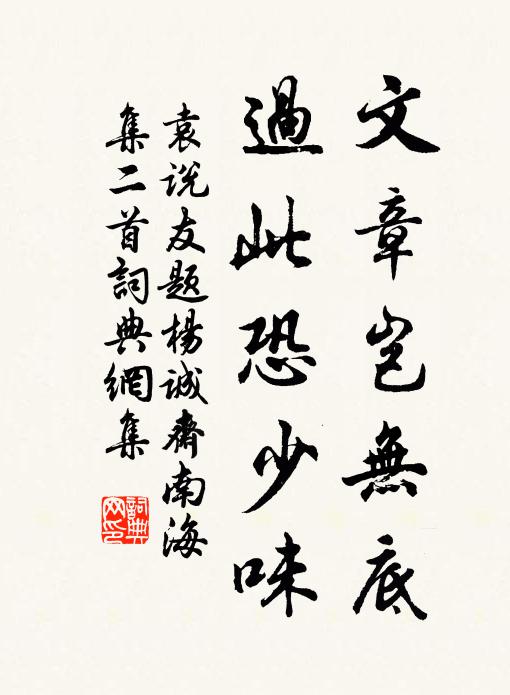 文章豈無底
過此恐少味
袁説友題楊誠齋南海
集二首詞典網集
詞典
网印